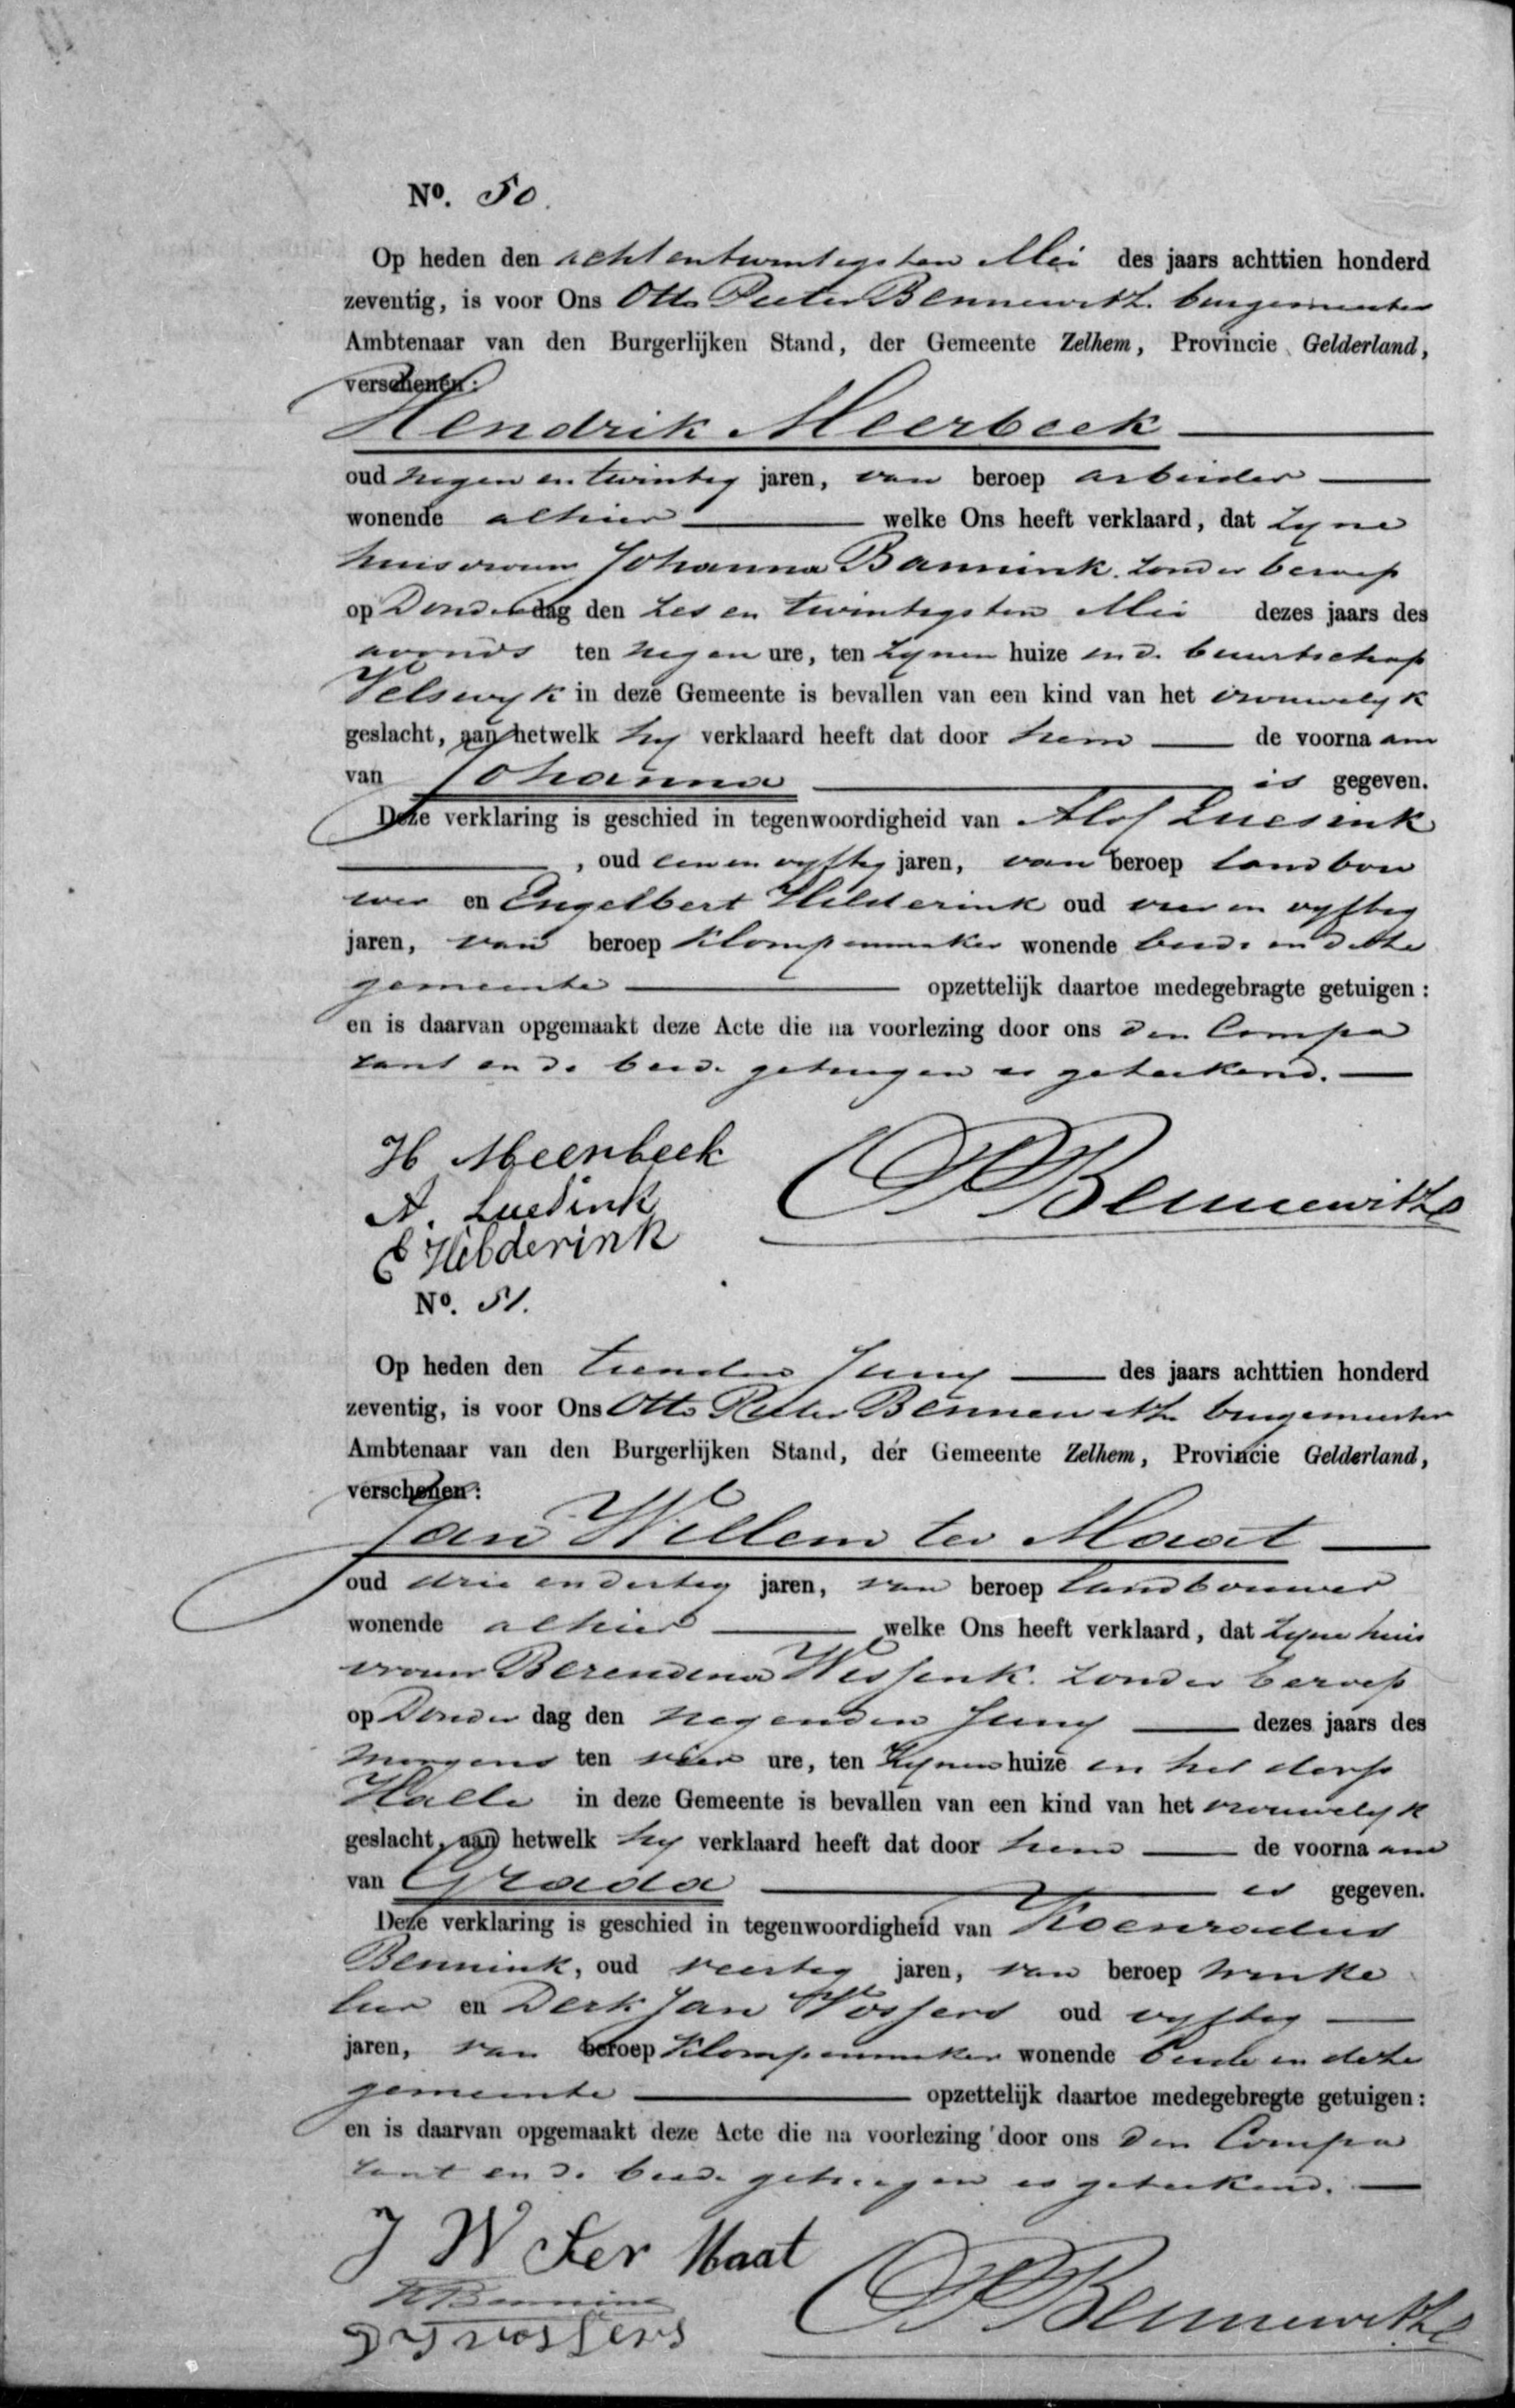 Nº. 50.
Op heden den achtentwintigsten Mei des jaars achttien honderd
zeventig, is voor Ons Otto Pieter Bennewitz. burgemeester
Ambtenaar van den Burgerlijken Stand, der Gemeente Zelhem, Provincie Gelderland,
verschenen:
Hendrik Meerbeek
oud negen en twintig jaren, van beroep arbeider
wonende alhier welke Ons heeft verklaard, dat zyne
huisvrouw Johanna Bannink. zonder beroep
op Donderdag den zes en twintigsten Mei dezes jaars des
avonds ten negen ure, ten zynen huize in de buurtschap
Velswyk in deze Gemeente is bevallen van een kind van het vrouwelyk
geslacht, aan hetwelk hy verklaard heeft dat door hem de voornaam
van Johanna is gegeven.
Deze verklaring is geschied in tegenwoordigheid van Alof Luesink
, oud een en vyftig jaren, van beroep landbou
wer en Engelbert Hilderink oud vier en vyftig
jaren, van beroep klompenmaker wonende beide in deze
gemeente opzettelijk daartoe medegebragte getuigen:
en is daarvan opgemaakt deze Acte die na voorlezing door ons den Compa
rant en de beide getuigen is geteekend.
H Meerbeek
A. Luesink OPBennewitz
E Hilderink
Nº. 51.
Op heden den tienden Juny des jaars achttien honderd
zeventig, is voor Ons Otto Pieter Bennewitz burgemeester
Ambtenaar van den Burgerlijken Stand, der Gemeente Zelhem, Provincie Gelderland,
verschenen:
Jan Willem ter Maat
oud drie en dertig jaren, van beroep landbouwer
wonende alhier welke Ons heeft verklaard, dat zyne huis
vrouw Berendina Wessink. zonder beroep
op Donderdag den negenden Juny dezes jaars des
morgens ten vier ure, ten zynen huize in het dorp
Halle in deze Gemeente is bevallen van een kind van het vrouwelyk
geslacht, aan hetwelk hy verklaard heeft dat door hem de voornaam
van Grada is gegeven.
Deze verklaring is geschied in tegenwoordigheid van Koenradus
Bennink, oud veertig jaren, van beroep winke
lier en Derk Jan Vossers oud vyftig
jaren, van beroep klompenmaker wonende beide in deze
gemeente opzettelijk daartoe medegebregte getuigen:
en is daarvan opgemaakt deze Acte die na voorlezing door ons den Compa
rant en de beide getuigen is geteekend.
J W ter Maat
K Bennink OPBennewitz
D J vossers